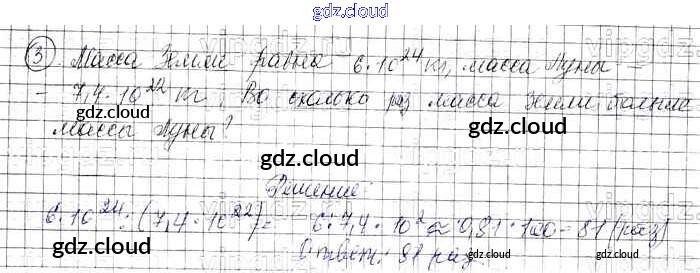 gdz.cloud
③ Масса Земли равна 6·10²⁴ кг, масса Луны –
– 7,4·10²² кг. Во сколько раз масса Земли больше
массы Луны?
gdz.cloud
gdz.cloud
gdz.cloud
Решение:
6·10²⁴ : (7,4·10²²) = 6:7,4·10² ≈ 0,81·100 = 81 (раз)
Ответ: 81 раз
gdz.cloud
gdz.cloud
gdz.cloud